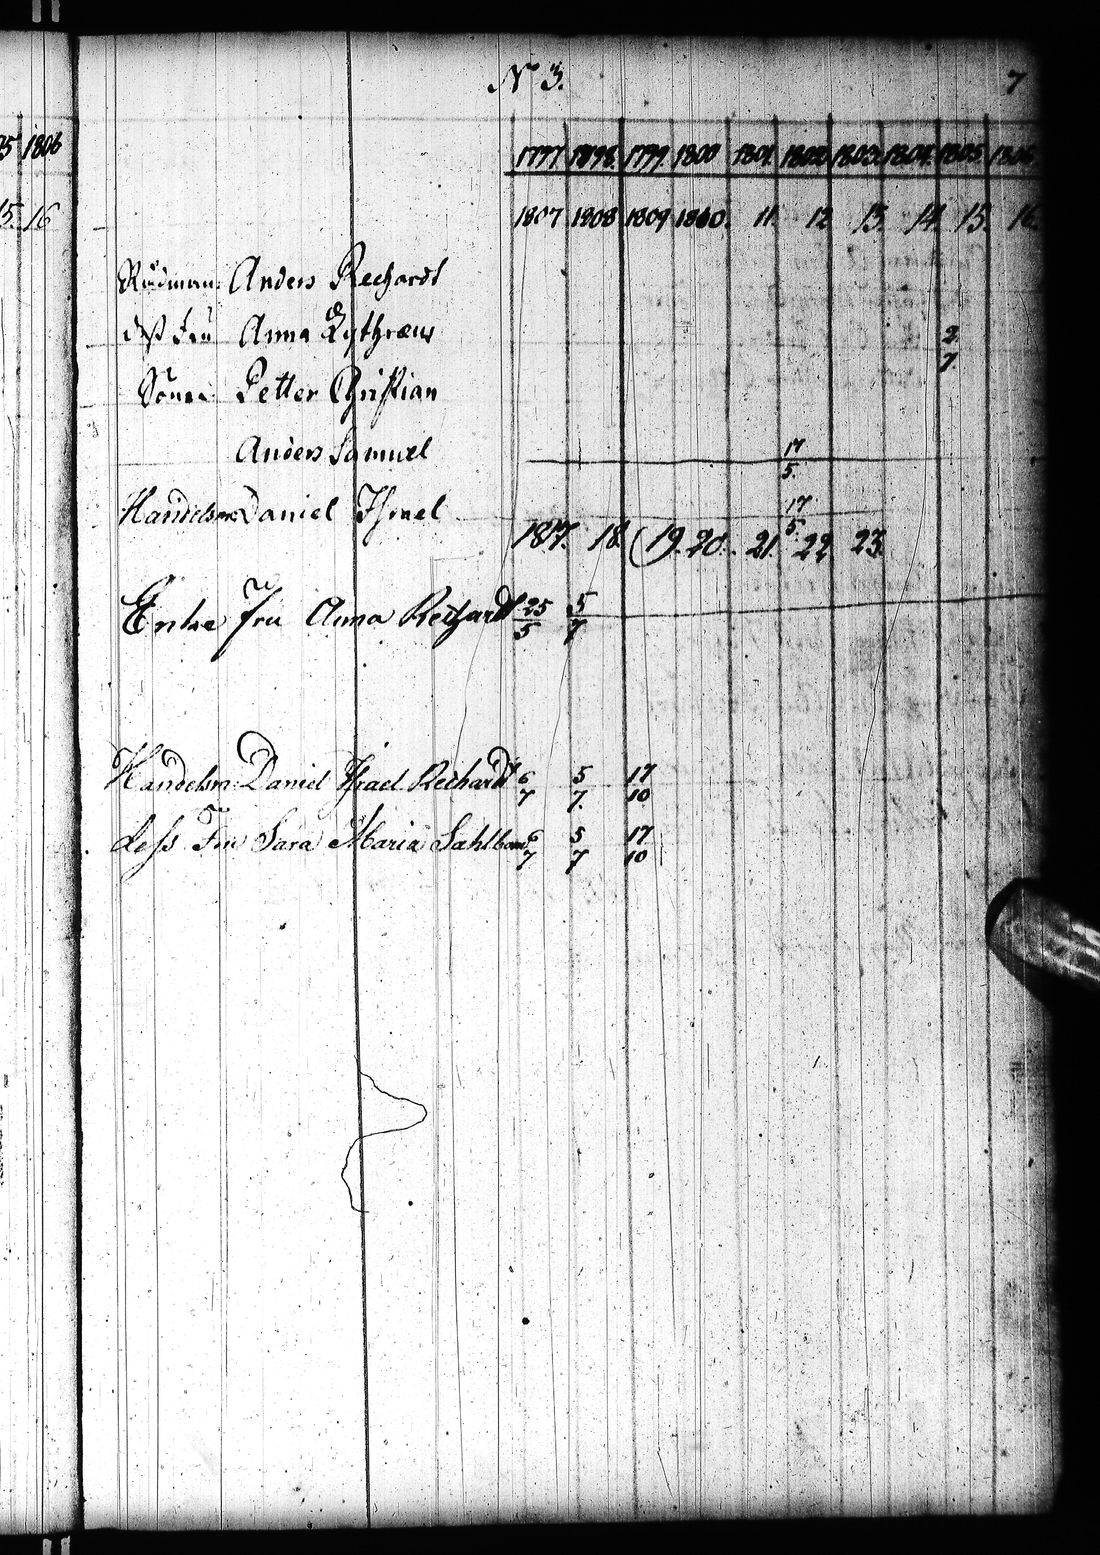 N 3. 7
05 1806
1797. 1798. 1799 1800 1801. 1802 1803. 1804. 1805 1806.
15. 16
1807 1808 1809 1810. 11. 12 13. 14. 15. 16.
Rådman Anders Rechardt
dess Fru Anna Lythræus 2/7.
Söner Petter Christian
Anders Samuel 17/5.
Handelsm Daniel Israel 17/5
1817. 18. (19. 20. 21. 22 23.
Enke Fru Anna Rechardt 25/5 5/7
Handelsm: Daniel Israel Rechardt 6/7 5/7. 17/10
dess Fru Sara Maria 6/7 5/7 17/10